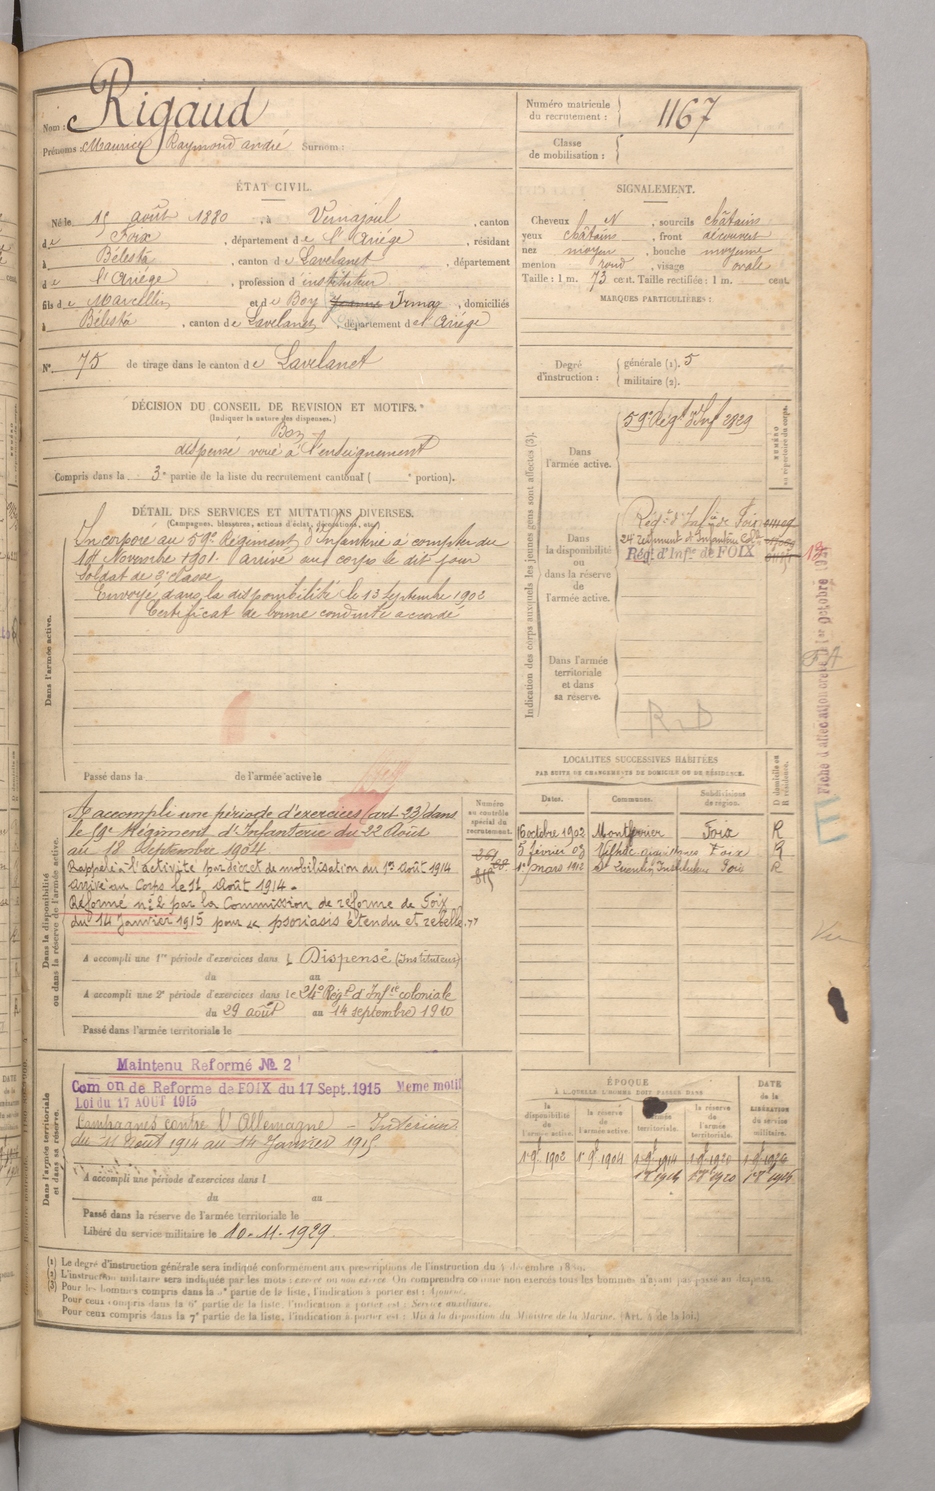 Nom : Rigaud
Prénoms : Maurice Raymond andré Surnom :
Numéro matricule du recrutement : 1167
Classe de mobilisation :
ÉTAT CIVIL.
Né le août 1880, à Vernajoul, canton
de Foix, département de l'Ariége, résidant
à Bélesta, canton de Lavelanet, département
de l'Ariége, profession d'instituteur
fils de Marcellin et de Boy Jeanne Irma, domiciliés
à Bélesta, canton de Lavelanet, département de l'Ariége
N° 75 de tirage dans le canton de Lavelanet
SIGNALEMENT.
Cheveux N, sourcils châtains
yeux châtains, front découvert
nez moyen, bouche moyenne
menton rond, visage ovale
Taille : 1 m. 73 cent. Taille rectifiée : 1 m. cent.
MARQUES PARTICULIÈRES :
Degré d'instruction : générale (1). 5
militaire (2).
DÉCISION DU CONSEIL DE REVISION ET MOTIFS.
(Indiquer la nature des dispenses.)
Bon
dispensé voué à l'enseignement
Compris dans la 3e partie de la liste du recrutement cantonal ( e portion).
DÉTAIL DES SERVICES ET MUTATIONS DIVERSES.
(Campagnes, blessures, actions d'éclat, décorations, etc.)
Dans l'armée active.
Incorporé au 59e Régiment d'Infanterie à compter du
Novembre 1901. arrivé au corps le dit jour
soldat de 2e classe
Envoyé dans la disponibilité le 13 Septembre 1902
Certificat de bonne conduite accordé
Passé dans la de l'armée active le
Indication des corps auxquels les jeunes gens sont affectés (3).
NUMÉRO au répertoire du corps.
Dans l'armée active.
59e Rég't d'Inf 2829
Dans la disponibilité ou dans la réserve de l'armée active.
Rég't d'Inf ie de Foix
24e régiment d'Infanterie Cole
Rég. d'Infie de FOIX
Dans l'armée territoriale et dans sa réserve.
R.D
LOCALITÉS SUCCESSIVES HABITÉES
PAR SUITE DE CHANGEMENTS DE DOMICILE OU DE RÉSIDENCE.
Dates. Communes. Subdivisions de région. D domicile ou R résidence.
16 octobre 1902 Montferrier Foix R
5 février 03 Foix R
1er mars 1912 St Quentin Instituteur Foix R
Dans la disponibilité ou dans la réserve de l'armée active.
Numéro au contrôle spécial du recrutement.
A accompli une période d'exercices (art. 23) dans
le 59e Régiment d'Infanterie du 22 Août
au 18 Septembre 1904
Rappelé à l'activité par décret de mobilisation du 1er Août 1914
arrivé au Corps le 11 Août 1914.
Réformé n° 2 par la Commission de réforme de Foix
du 14 Janvier 1915 pour « psoriasis étendu et rebelle. »
A accompli une 1re période d'exercices dans l Dispensé (Instituteur)
du au
A accompli une 2e période d'exercices dans le 24e Rég't d'Inf rie coloniale
du 29 août au 14 septembre 1910
Passé dans l'armée territoriale le
Dans l'armée territoriale et dans sa réserve.
Maintenu Reformé No 2
Comon de Reforme de FOIX du 17 Sept. 1915 Meme motif
Loi du 17 AOUT 1915
Campagnes contre l'Allemagne - Intérieur
du 11 Août 1914 au 14 Janvier 1915
A accompli une période d'exercices dans l
du au
Passé dans la réserve de l'armée territoriale le
Libéré du service militaire le 10-11-1929
ÉPOQUE
À LAQUELLE L'HOMME DOIT PASSER DANS
la disponibilité de l'armée active. la réserve de l'armée active. l'armée territoriale. la réserve de l'armée territoriale.
DATE de la LIBÉRATION du service militaire.
1 9e 1902 1 9e 1904 1 9e 1914 1 9e 1920
(1) Le degré d'instruction générale sera indiqué conformément aux prescriptions de l'instruction du 4 décembre 1889.
(2) L'instruction militaire sera indiquée par les mots : exercé ou non exercé. On comprendra comme non exercés tous les hommes n'ayant pas passé au drapeau.
(3) Pour les hommes compris dans la 5e partie de la liste, l'indication à porter est : Ajourné.
Pour ceux compris dans la 6e partie de la liste, l'indication à porter est : Service auxiliaire.
Pour ceux compris dans la 7e partie de la liste, l'indication à porter est : Mis à la disposition du Ministre de la Marine. (Art. 4 de la loi.)